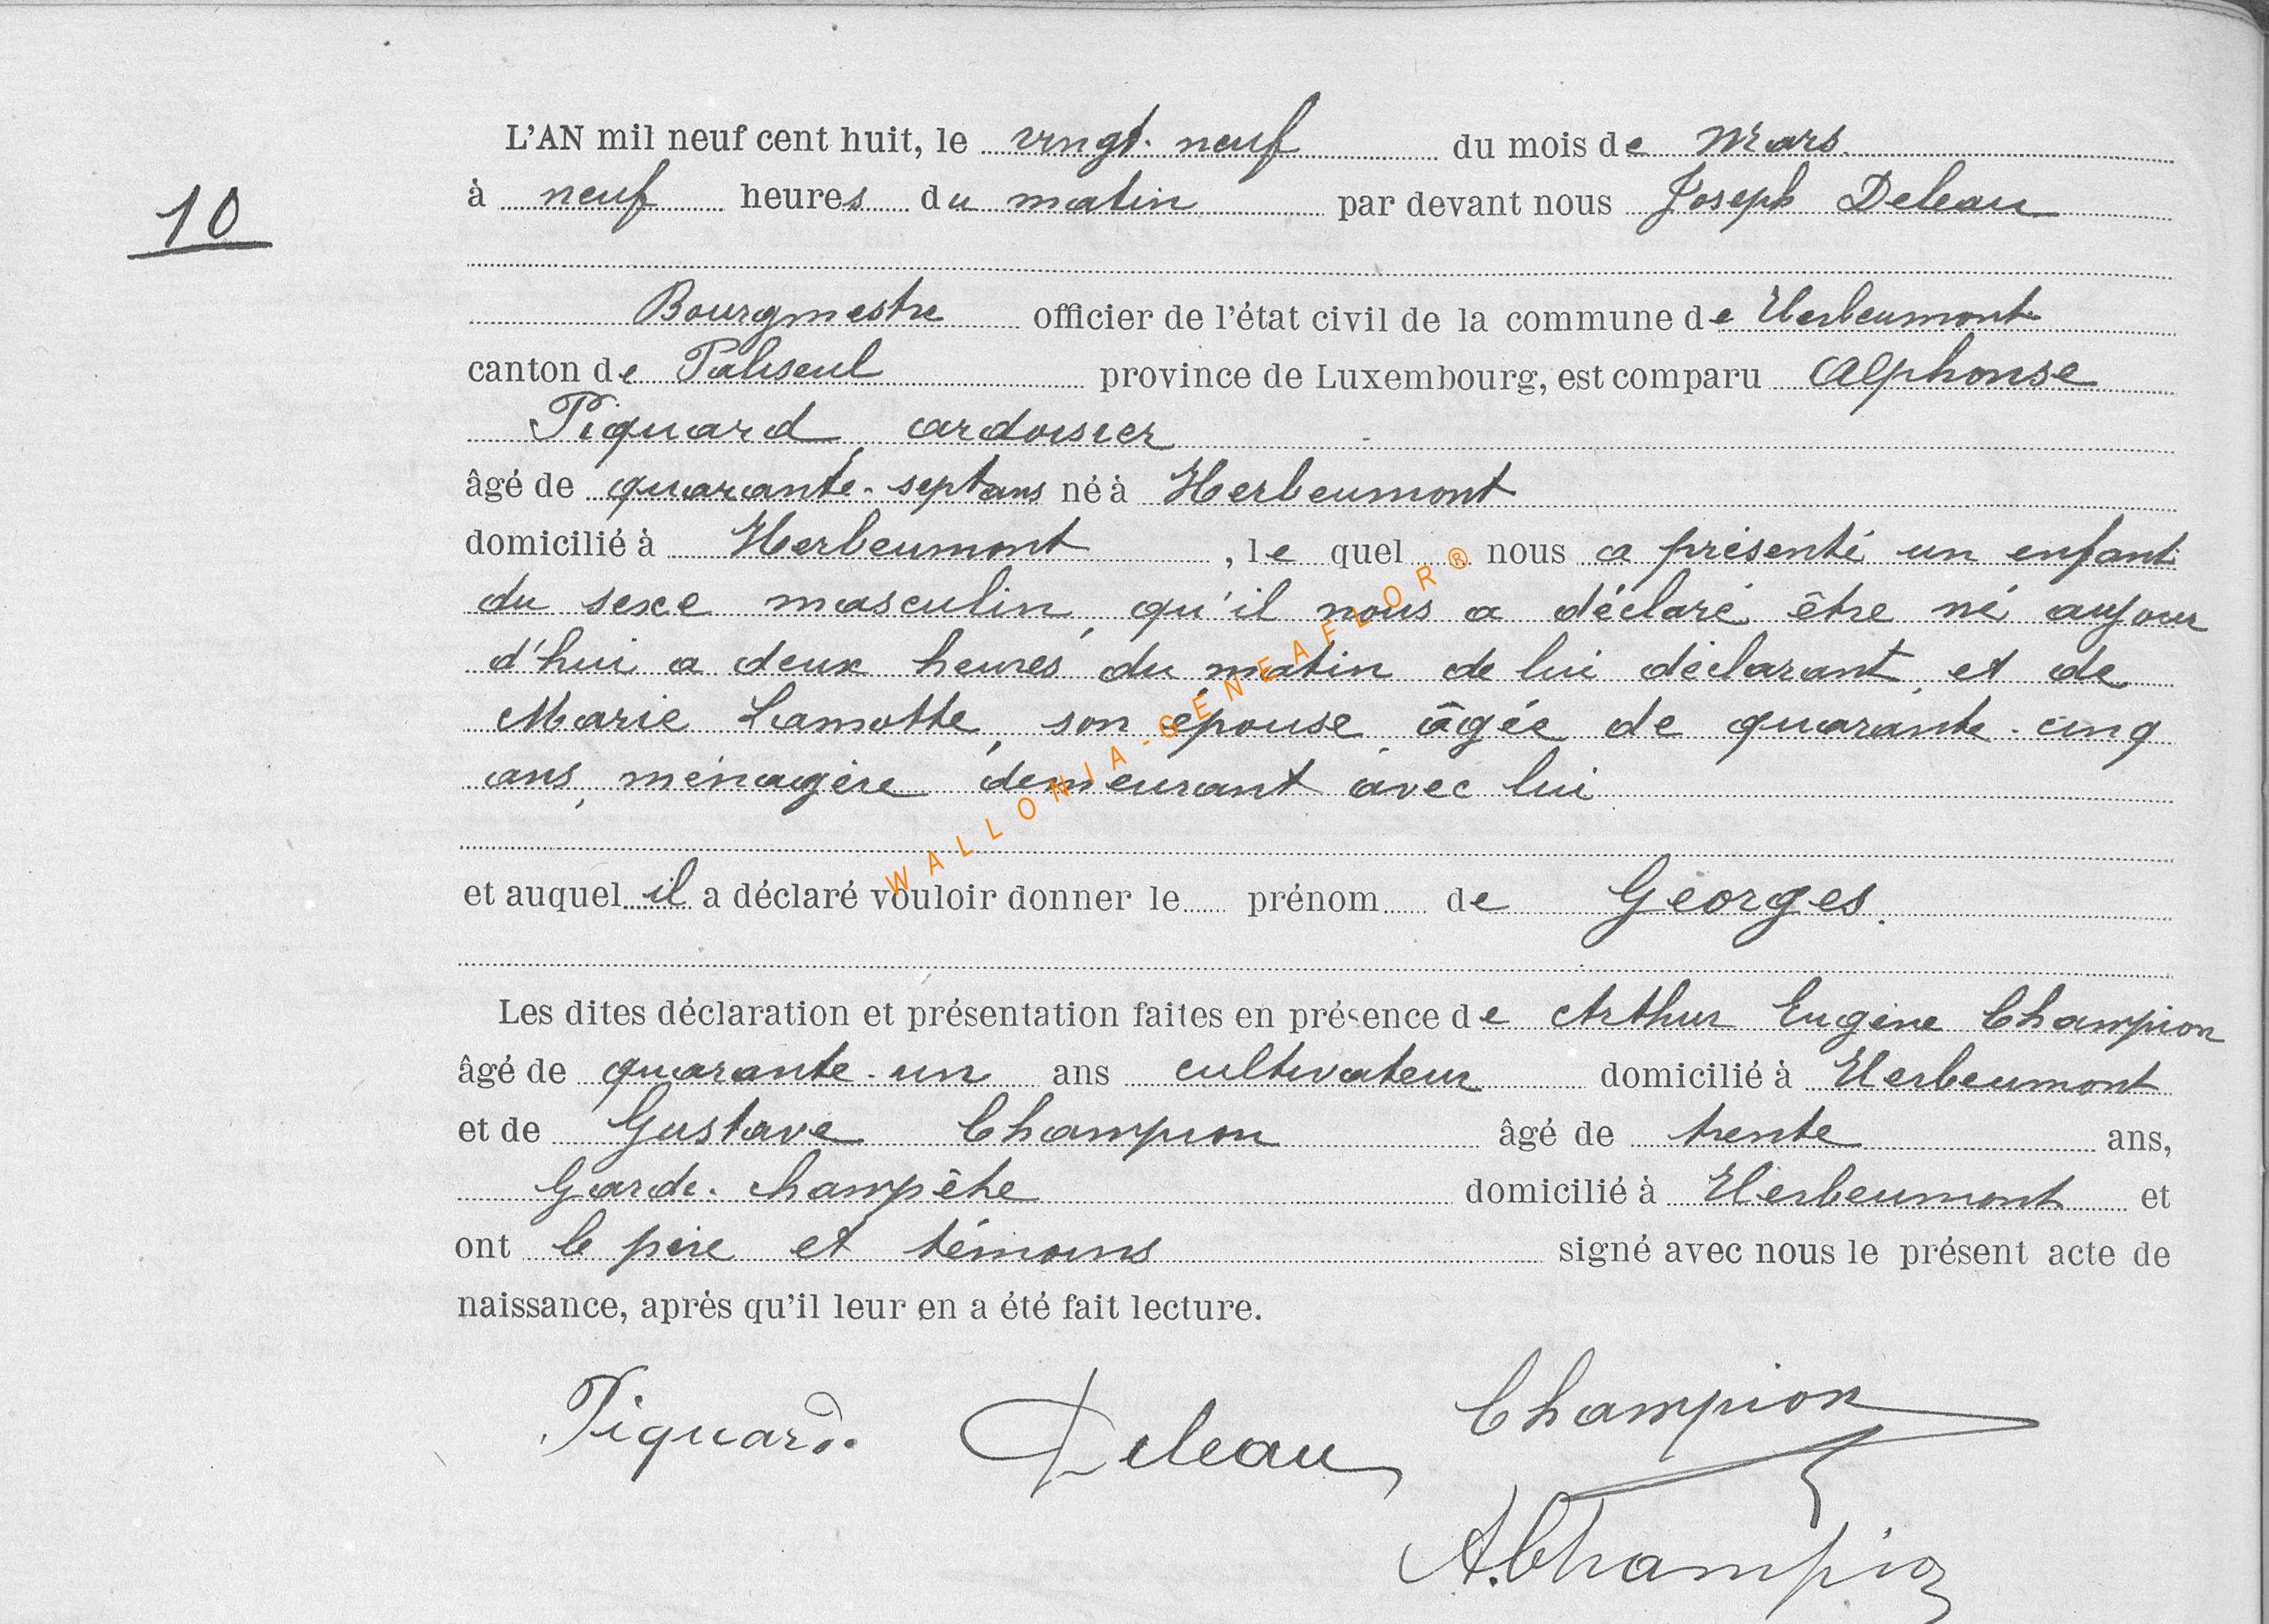 10
L'AN mil neuf cent huit, le vingt-neuf du mois de Mars.
à neuf heures du matin par devant nous Joseph Deleau
Bourgmestre officier de l'état civil de la commune de Herbeumont
canton de Paliseul province de Luxembourg, est comparu Alphonse
Piquard, ardoisier
âgé de quarante-sept ans né à Herbeumont
domicilié à Herbeumont, le quel nous a présenté un enfant
du sexe masculin, qu'il nous a déclaré être né aujour
d'hui a deux heures du matin de lui déclarant, et de
Marie Lamotte, son épouse, âgée de quarante-cinq
ans, ménagère demeurant avec lui
et auquel il a déclaré vouloir donner le prénom de Georges.
Les dites déclaration et présentation faites en présence de Arthur Eugène Champion
âgé de quarante-un ans cultivateur domicilié à Herbeumont
et de Gustave Champion âgé de trente ans,
Garde-champêtre domicilié à Herbeumont et
ont le père et témoins signé avec nous le présent acte de
naissance, après qu'il leur en a été fait lecture.
Piquard. Deleau Champion
A. Champion
WALLONIA-GENEAFLOR®